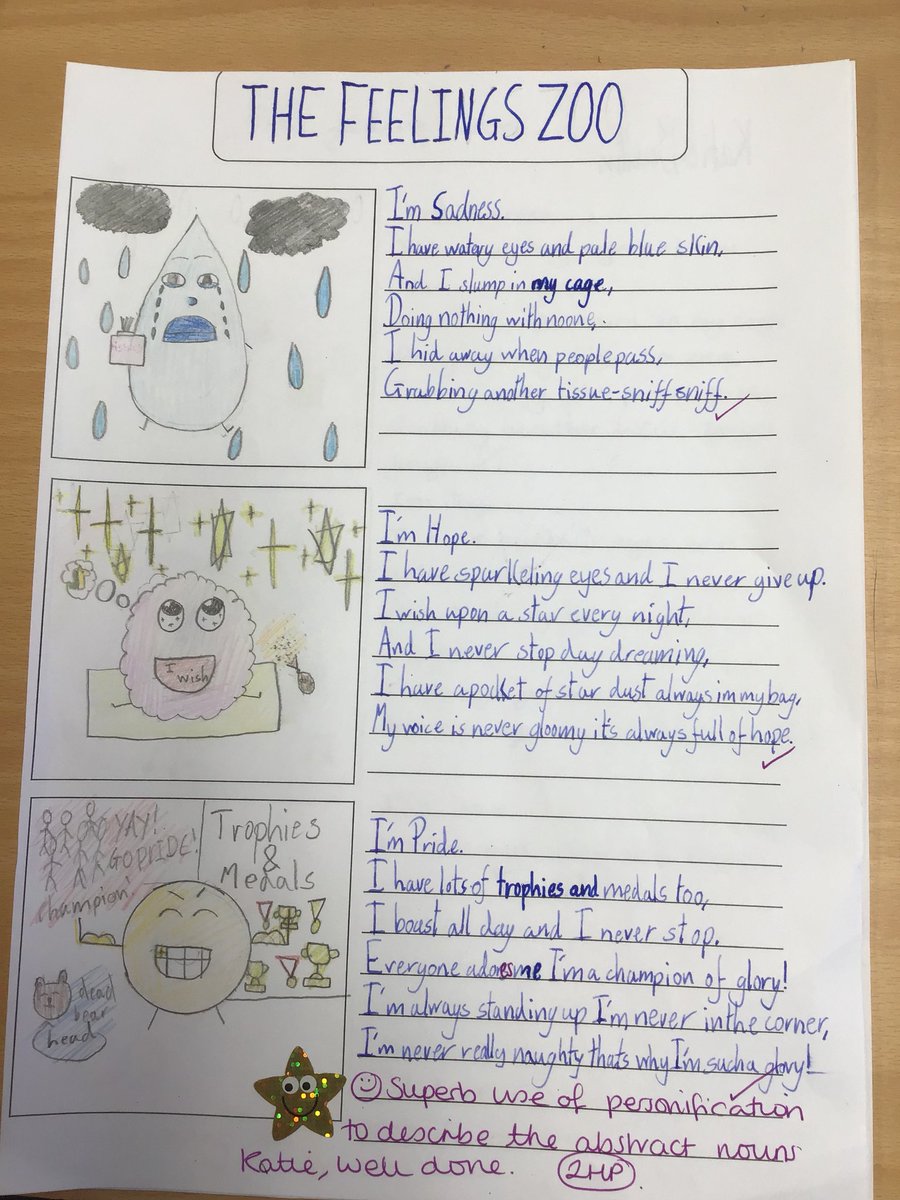 THE FEELINGS ZOO
I'm Sadness.
I have watery eyes and pale blue skin,
And I slump in my cage,
Doing nothing with noone,
I hid away when people pass,
Grabbing another tissue-sniff sniff.
I'm Hope.
I have sparkleling eyes and I never give up.
I wish upon a star every night,
And I never stop day dreaming,
I have a pocket of star dust always in my bag,
My voice is never gloomy it's always full of hope.
I wish
I'm Pride.
I have lots of trophies and medals too,
I boast all day and I never stop.
Everyone adores me I'm a champion of glory!
I'm always standing up I'm never in the corner,
I'm never really naughty thats why I'm such a glory!
YAY!
GO PRIDE!
champion!
Trophies
&
Medals
dead
bear
head
Superb use of personification
to describe the abstract nouns
Katie, well done. 2HP